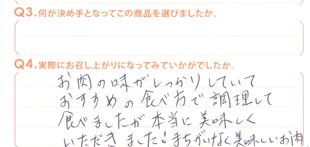 Q3.何が決め手となってこの商品を選びましたか。
Q4.実際にお召し上がりになってみていかがでしたか。
お肉の味がしっかりしていて
おすすめの食べ方で調理して
食べましたが本当に美味しく
いただきました!まちがいなく美味しいお肉